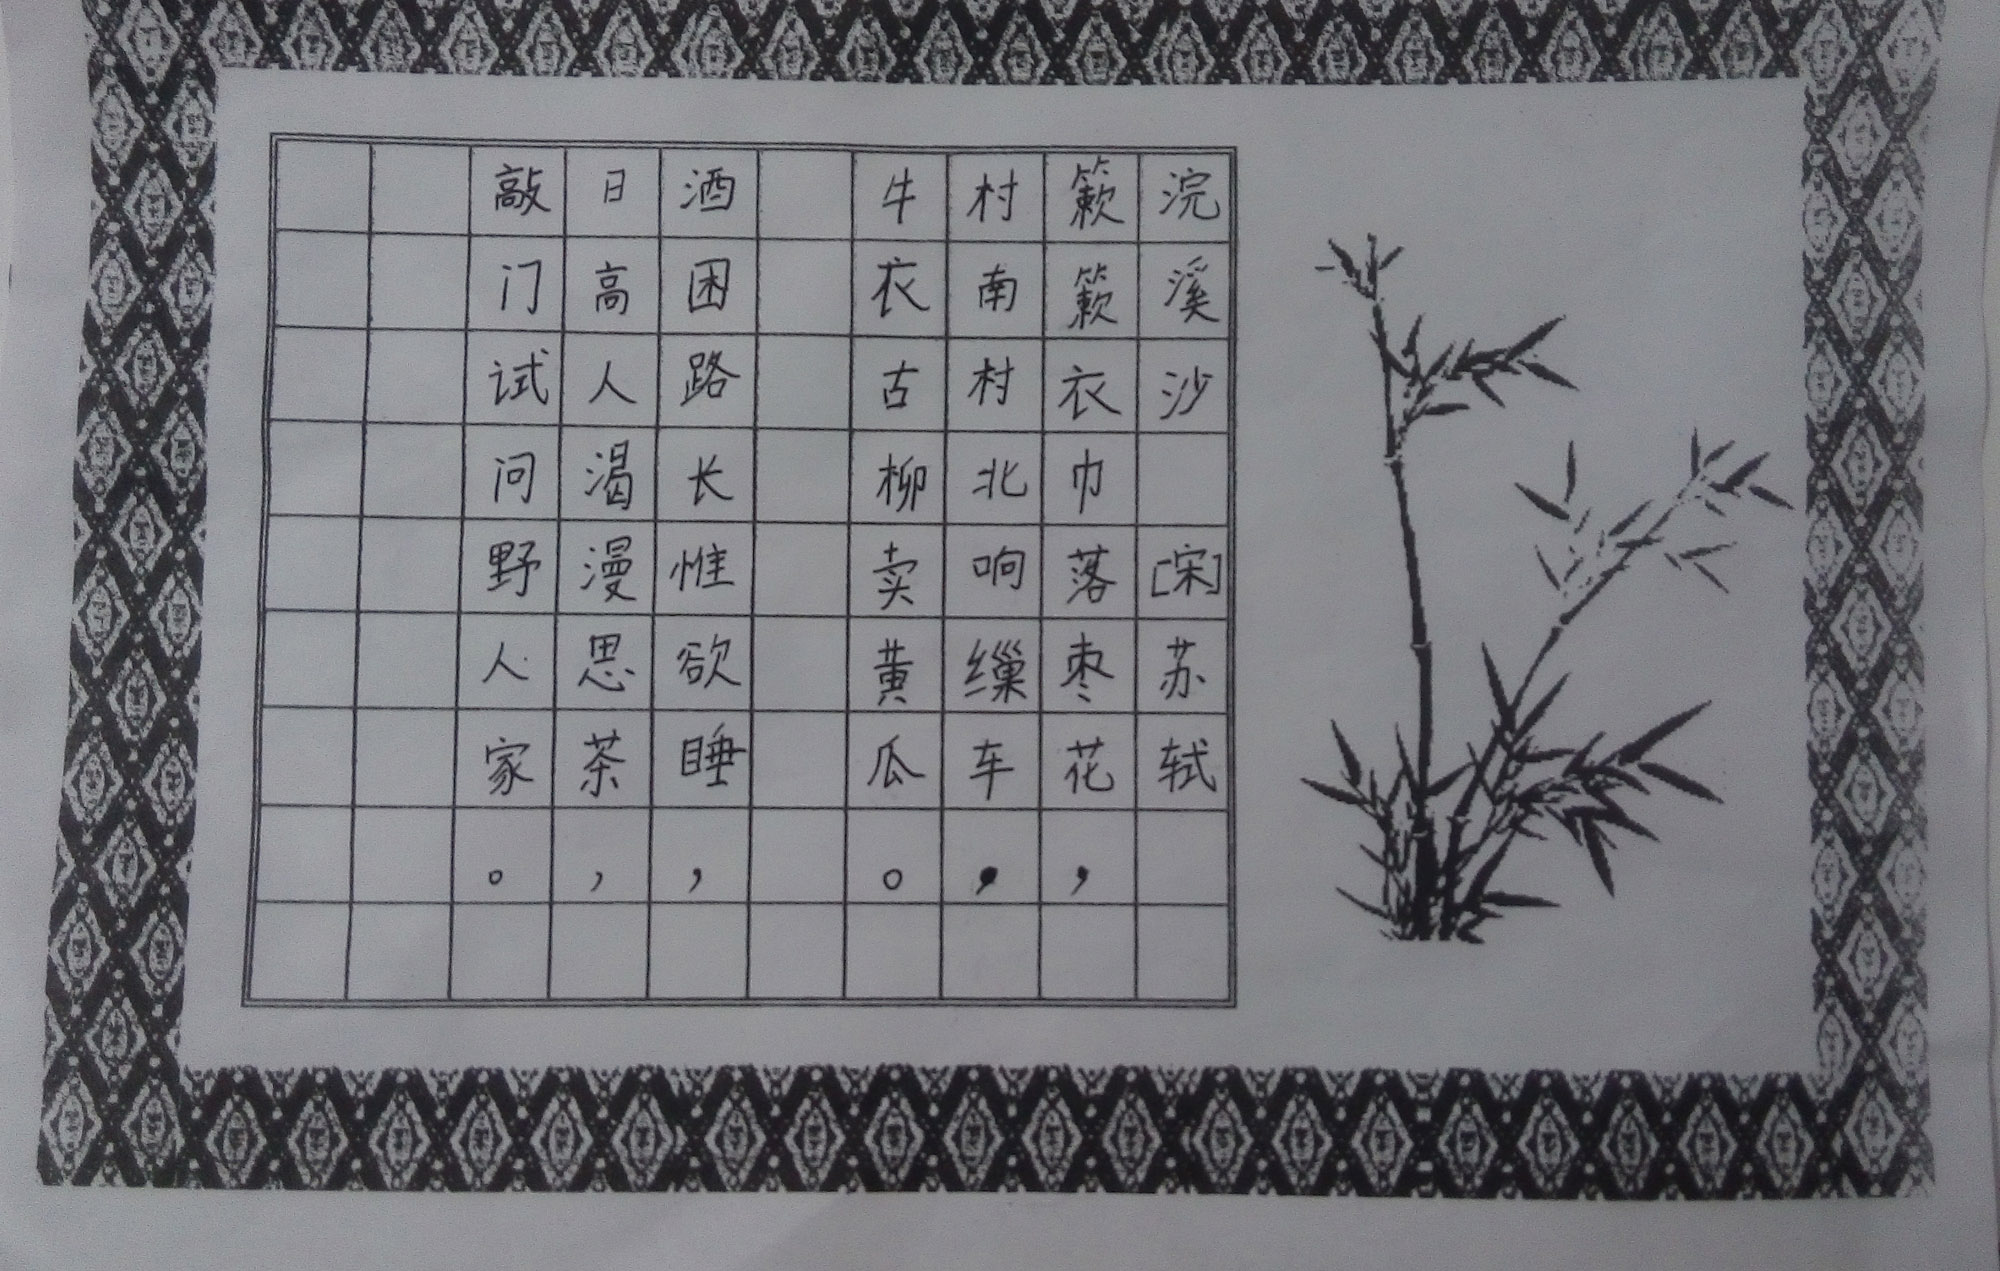 浣溪沙 [宋]苏轼
簌簌衣巾落枣花，
村南村北响缫车，
牛衣古柳卖黄瓜。
酒困路长惟欲睡，
日高人渴漫思茶，
敲门试问野人家。